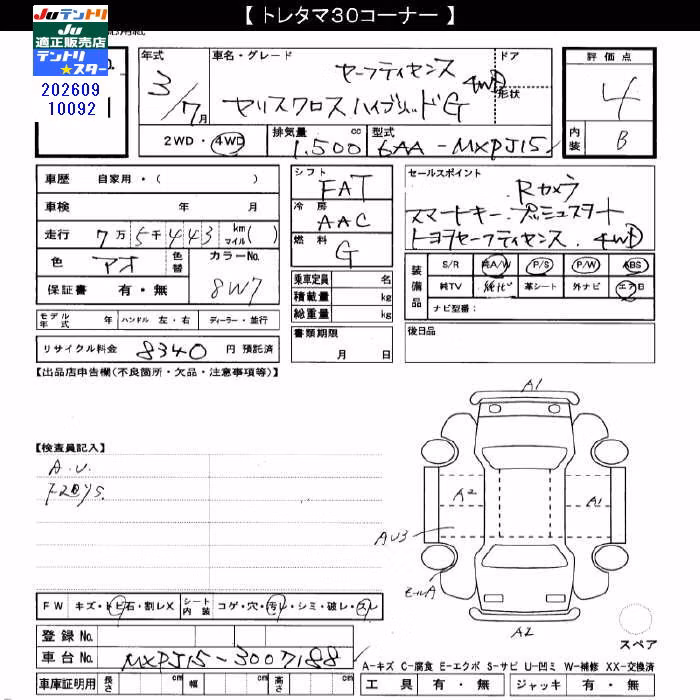 【 トレタマ30コーナー 】
Juテントリ
Ju
適正販売店
テントリ
★スター
202609
10092
年式
3/7月
車名・グレード
セーフティセンス
ヤリスクロスハイブリッドG 4WD
ドア
形状
評価点
4
内装
B
2WD・4WD
排気量
1.500 cc
型式
6AA-MXPJ15
車歴 自家用・( )
車検 年 月
走行 7万5千443 km マイル( )
色 アオ
色替
カラーNo.
8W7
保証書 有・無
モデル年式 年 ハンドル 左・右 ディーラー・並行
リサイクル料金 8340 円 預託済
シフト
FAT
冷房
AAC
燃料
G
乗車定員 名
積載量 kg
総重量 kg
書類期限
月 日
セールスポイント
Rカメラ
スマートキー.プッシュスタート
トヨタセーフティセンス.4WD
装備品
S/R 純A/W P/S P/W ABS
純TV 純ナビ 革シート 外ナビ エアB
ナビ型番:
後日品
【出品店申告欄(不良箇所・欠品・注意事項等)】
【検査員記入】
A.U.
A1
A2
A1
AU3
モールA
A2
スペア
FW キズ・トビ石・割レX
シート内装 コゲ・穴・汚レ・シミ・破レ・スレ
登録No.
車台No. MXPJ15-3007188
車庫証明用 長さ cm 幅 cm 高さ cm
A-キズ C-腐食 E-エクボ S-サビ U-凹ミ W-補修 XX-交換済
工具 有・無 ジャッキ 有・無